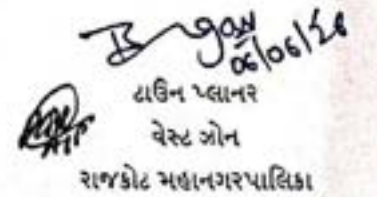 06/06/26
ટાઉન પ્લાનર
વેસ્ટ ઝોન
રાજકોટ મહાનગરપાલિકા